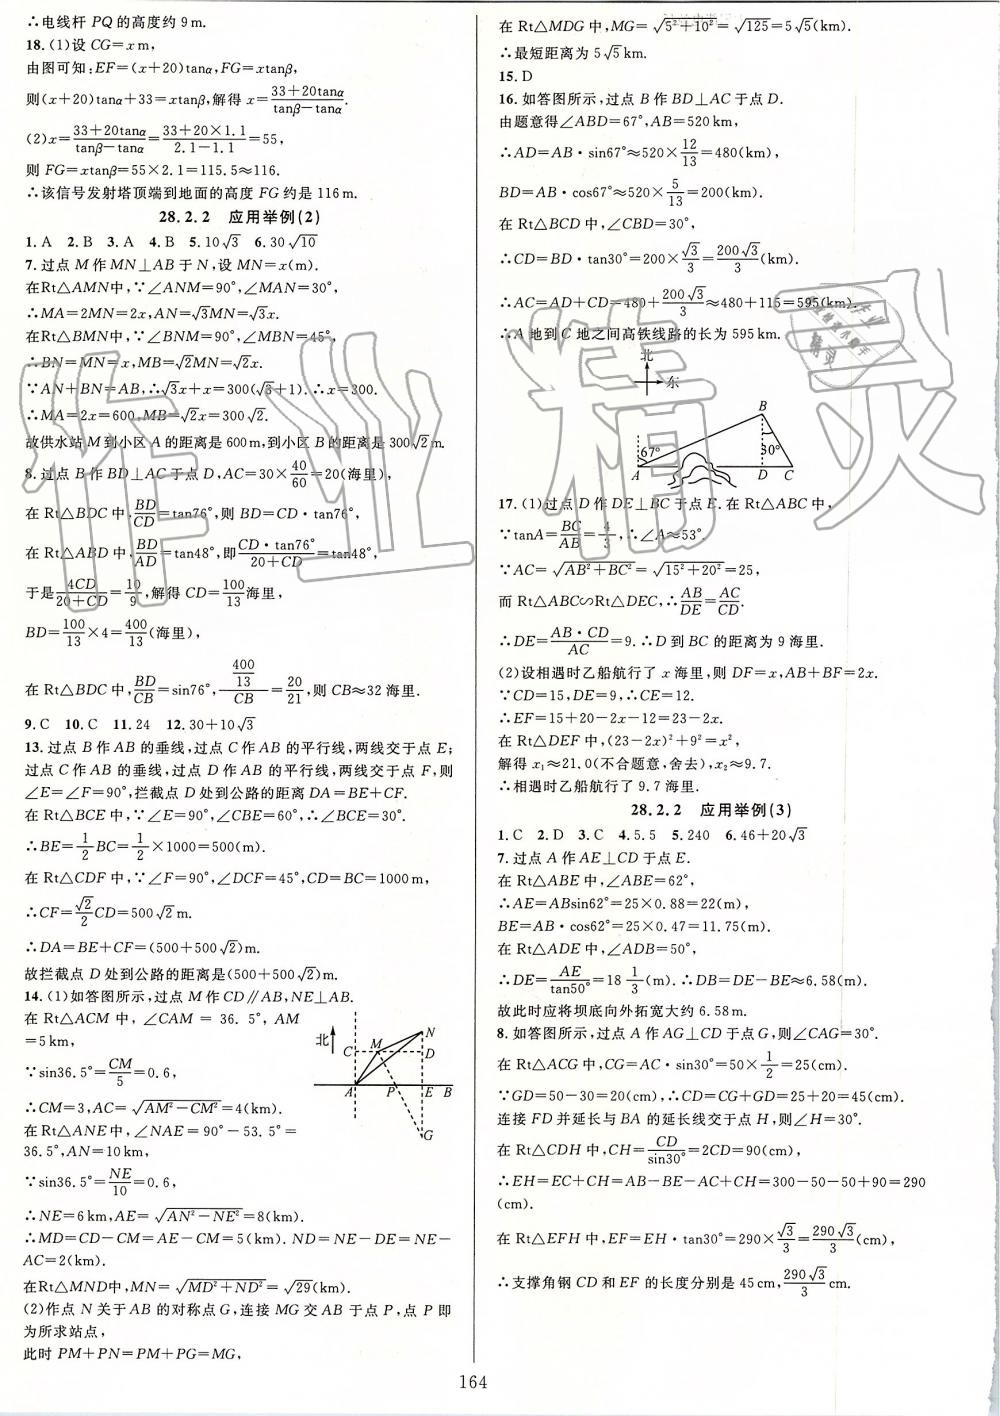 ∴电线杆 PQ 的高度约 9 m.
18. (1)设 CG=x m,
由图可知:EF=(x+20)tanα,FG=xtanβ,
则(x+20)tanα+33=xtanβ,解得 x=(33+20tanα)/(tanβ−tanα).
(2)x=(33+20tanα)/(tanβ−tanα)=(33+20×1.1)/(2.1−1.1)=55,
则 FG=xtanβ=55×2.1=115.5≈116.
∴该信号发射塔顶端到地面的高度 FG 约是 116 m.
28.2.2 应用举例(2)
1. A 2. B 3. A 4. B 5. 10√3 6. 30√10
7. 过点 M 作 MN⊥AB 于 N,设 MN=x(m).
在Rt△AMN中,∵∠ANM=90°,∠MAN=30°,
∴MA=2MN=2x,AN=√3MN=√3x.
在Rt△BMN中,∵∠BNM=90°,∠MBN=45°,
∴BN=MN=x,MB=√2MN=√2x.
∵AN+BN=AB,∴√3x+x=300(√3+1).∴x=300.
∴MA=2x=600,MB=√2x=300√2.
故供水站 M 到小区 A 的距离是 600 m,到小区 B 的距离是 300√2 m.
8. 过点 B 作 BD⊥AC 于点 D,AC=30×40/60=20(海里),
在 Rt△BDC 中,BD/CD=tan76°,则 BD=CD·tan76°,
在 Rt△ABD 中,BD/AD=tan48°,即(CD·tan76°)/(20+CD)=tan48°,
于是4CD/(20+CD)=10/9,解得 CD=100/13海里,
BD=100/13×4=400/13(海里),
在 Rt△BDC 中,BD/CB=sin76°,(400/13)/CB=20/21,则 CB≈32 海里.
9. C 10. C 11. 24 12. 30+10√3
13. 过点 B 作 AB 的垂线,过点 C 作 AB 的平行线,两线交于点 E;
过点 C 作 AB 的垂线,过点 D 作 AB 的平行线,两线交于点 F,则
∠E=∠F=90°,拦截点 D 处到公路的距离 DA=BE+CF.
在 Rt△BCE 中,∵∠E=90°,∠CBE=60°,∴∠BCE=30°.
∴BE=1/2BC=1/2×1000=500(m).
在 Rt△CDF 中,∵∠F=90°,∠DCF=45°,CD=BC=1000 m,
∴CF=√2/2CD=500√2 m.
∴DA=BE+CF=(500+500√2)m.
故拦截点 D 处到公路的距离是(500+500√2)m.
14. (1)如答图所示,过点 M 作 CD∥AB,NE⊥AB.
在 Rt△ACM 中,∠CAM = 36.5°,AM
=5 km,
∵sin36.5°=CM/5=0.6,
∴CM=3,AC=√(AM²−CM²)=4(km).
在 Rt△ANE 中,∠NAE = 90° − 53.5° =
36.5°,AN=10 km,
∵sin36.5°=NE/10=0.6,
∴NE=6 km,AE=√(AN²−NE²)=8(km).
∴MD=CD−CM=AE−CM=5(km). ND=NE−DE=NE−
AC=2(km).
在Rt△MND中,MN=√(MD²+ND²)=√29(km).
(2)作点 N 关于 AB 的对称点 G,连接 MG 交 AB 于点 P,点 P 即
为所求站点,
此时 PM+PN=PM+PG=MG,
北
N
C
M
D
A
P
E
B
G
在 Rt△MDG 中,MG=√(5²+10²)=√125=5√5(km).
∴最短距离为 5√5 km.
15. D
16. 如答图所示,过点 B 作 BD⊥AC 于点 D.
由题意得∠ABD=67°,AB=520 km,
∴AD=AB·sin67°≈520×12/13=480(km),
BD=AB·cos67°≈520×5/13=200(km).
在 Rt△BCD 中,∠CBD=30°,
∴CD=BD·tan30°=200×√3/3=200√3/3(km).
∴AC=AD+CD=480+200√3/3≈480+115=595(km).
∴A 地到 C 地之间高铁线路的长为 595 km.
北
东
B
67°
30°
A
D
C
17. (1)过点 D 作 DE⊥BC 于点 E. 在 Rt△ABC 中,
∵tanA=BC/AB=4/3,∴∠A≈53°.
∵AC=√(AB²+BC²)=√(15²+20²)=25,
而 Rt△ABC∽Rt△DEC,∴AB/DE=AC/CD.
∴DE=(AB·CD)/AC=9. ∴D 到 BC 的距离为 9 海里.
(2)设相遇时乙船航行了 x 海里,则 DF=x,AB+BF=2x.
∵CD=15,DE=9,∴CE=12.
∴EF=15+20−2x−12=23−2x.
在 Rt△DEF 中,(23−2x)²+9²=x²,
解得 x₁≈21.0(不合题意,舍去),x₂≈9.7.
∴相遇时乙船航行了 9.7 海里.
28.2.2 应用举例(3)
1. C 2. D 3. C 4. 5.5 5. 240 6. 46+20√3
7. 过点 A 作 AE⊥CD 于点 E.
在 Rt△ABE 中,∠ABE=62°,
∴AE=ABsin62°=25×0.88=22(m),
BE=AB·cos62°=25×0.47=11.75(m).
在 Rt△ADE 中,∠ADB=50°,
∴DE=AE/tan50°=18 1/3(m). ∴DB=DE−BE≈6.58(m).
故此时应将坝底向外拓宽大约 6.58 m.
8. 如答图所示,过点 A 作 AG⊥CD 于点 G,则∠CAG=30°.
在 Rt△ACG 中,CG=AC·sin30°=50×1/2=25(cm).
∵GD=50−30=20(cm),∴CD=CG+GD=25+20=45(cm).
连接 FD 并延长与 BA 的延长线交于点 H,则∠H=30°.
在 Rt△CDH 中,CH=CD/sin30°=2CD=90(cm),
∴EH=EC+CH=AB−BE−AC+CH=300−50−50+90=290
(cm).
在 Rt△EFH 中,EF=EH·tan30°=290×√3/3=290√3/3(cm),
∴支撑角钢 CD 和 EF 的长度分别是 45 cm,290√3/3 cm.
164
作业精灵